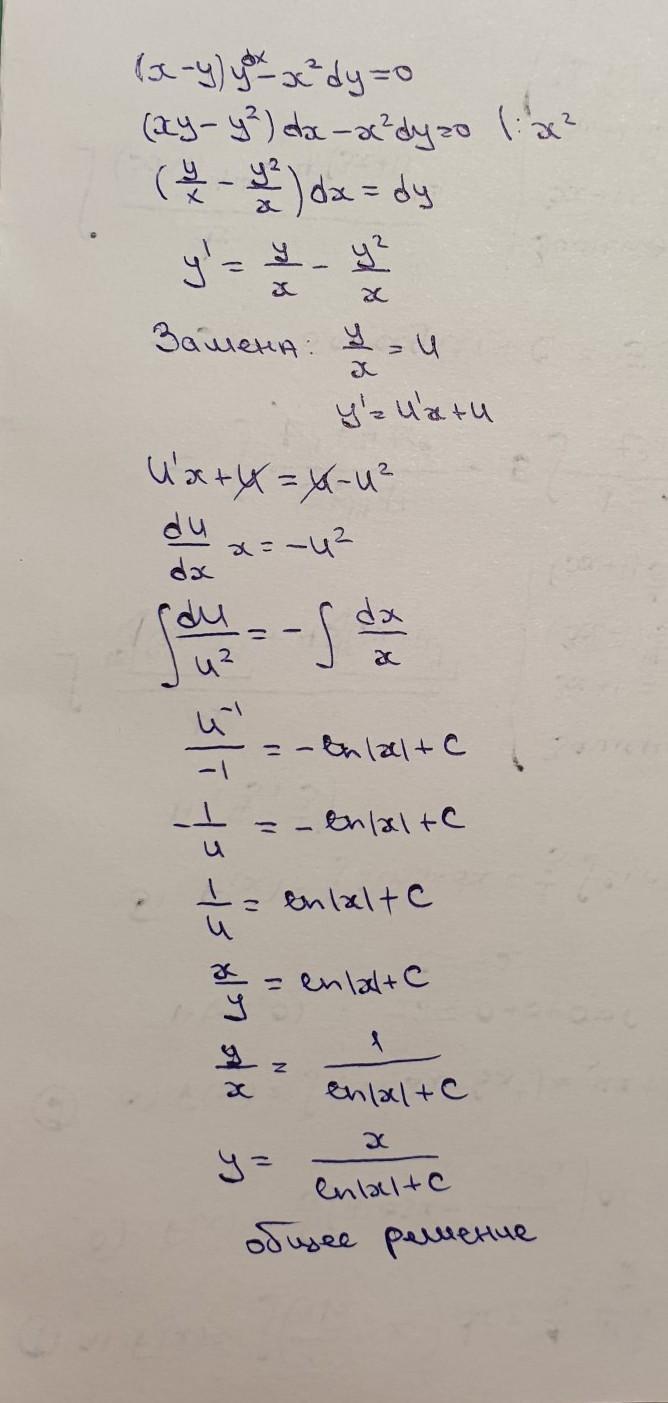 (x-y)y dx - x²dy=0
(xy-y²)dx-x²dy=0 |: x²
(y/x - y²/x)dx = dy
y' = y/x - y²/x
Замена: y/x = u
y'=u'x+u
u'x+u=u-u²
du/dx x=-u²
∫du/u² = -∫dx/x
u⁻¹/-1 = -ln|x|+C
-1/u = -ln|x|+C
1/u = ln|x|+C
x/y = ln|x|+C
y/x = 1/ln|x|+C
y= x/ln|x|+C
общее решение